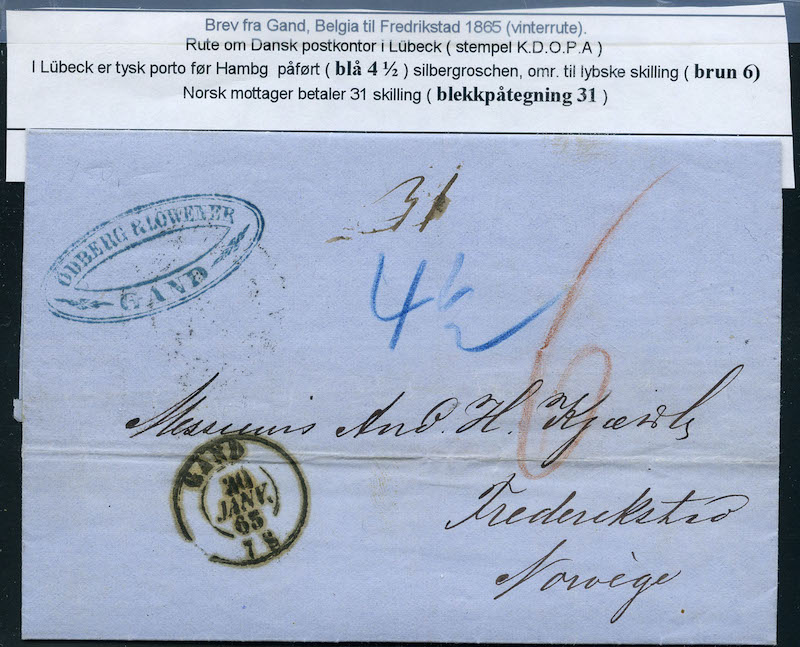 Brev fra Gand, Belgia til Fredrikstad 1865 (vinterrute).
Rute om Dansk postkontor i Lübeck ( stempel K.D.O.P.A )
I Lübeck er tysk porto før Hambg påført ( blå 4 ½ ) silbergroschen, omr. til lybske skilling ( brun 6)
Norsk mottager betaler 31 skilling ( blekkpåtegning 31 )
31
ODBERG & LOWENER
GAND
4 ½
6
Messieurs And. H.
GAND
JANV.
65
Frederikstad
Norvège